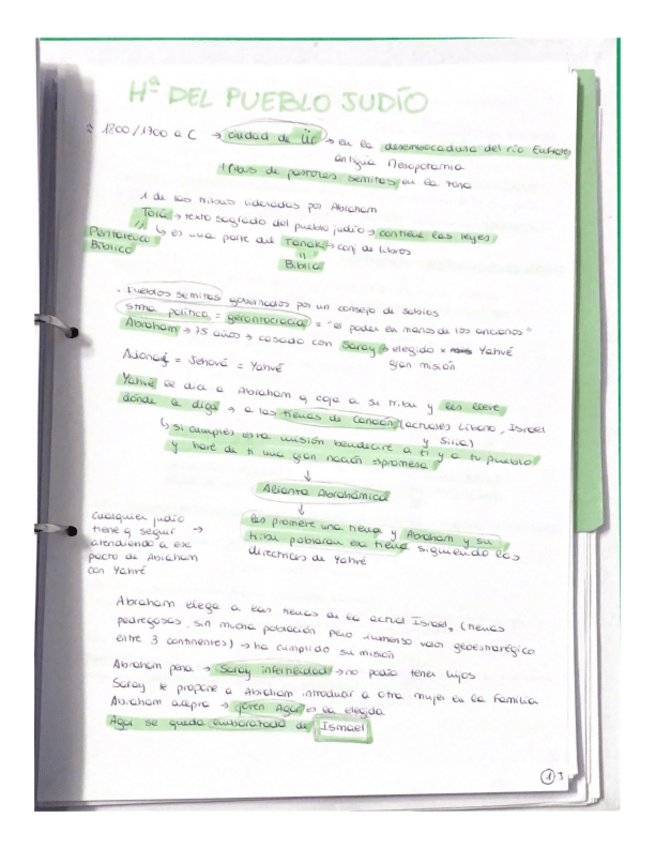 Hª DEL PUEBLO JUDÍO
≈ 1200/1700 a C → ciudad de Ur → en la desembocadura del río Eufrates
antigua Mesopotamia
tribus de pastores semitas en la zona
1 de las tribus lideradas por Abraham
Torá → texto sagrado del pueblo judío → contiene las leyes
Pentateuco Bíblico
↳ es una parte del Tanak → conj de libros
Biblia
. Pueblos semitas gobernados por un consejo de sabios
stma político = gerontocracia = "el poder en manos de los ancianos"
Abraham → 75 años → casado con Saray → elegido x Yahvé
gran misión
Adonay = Jehová = Yahvé
Yahvé le dice a Abraham q coja a su tribu y les lleve
donde le diga → a las tierras de Canaán (actuales Líbano, Israel
y Siria)
↳ si cumples esta misión bendeciré a ti y a tu pueblo
y haré de ti una gran nación → promesa
↓
Alianza Abrahámica
↓
les promete una tierra y Abraham y su
tribu poblarán esa tierra siguiendo las
directrices de Yahvé
Cualquier judío
tiene q seguir →
atendiendo a ese
pacto de Abraham
con Yahvé
Abraham llega a las tierras de la actual Israel, (tierras
pedregosas, sin mucha población pero inmenso valor geoestratégico
entre 3 continentes) → ha cumplido su misión
Abraham pena → Saray infertilidad → no podía tener hijos
Saray le propone a Abraham introducir a otra mujer en la familia
Abraham acepta → joven Agar es la elegida
Agar se queda embarazada de Ismael
1 3